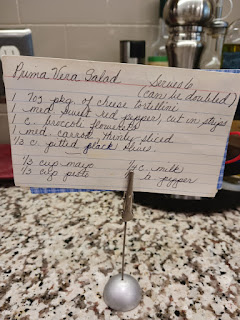 Prima Vera Salad (Serves 6,
(can be doubled)
1 7oz pkg. of cheese tortellini
1 med. sweet red pepper, cut in strips
1 c. broccoli flowerets
1 med. carrot, thinly sliced
1/3 c. pitted black olives
1/3 cup mayo 1/4 c. milk
1/3 cup pesto pepper